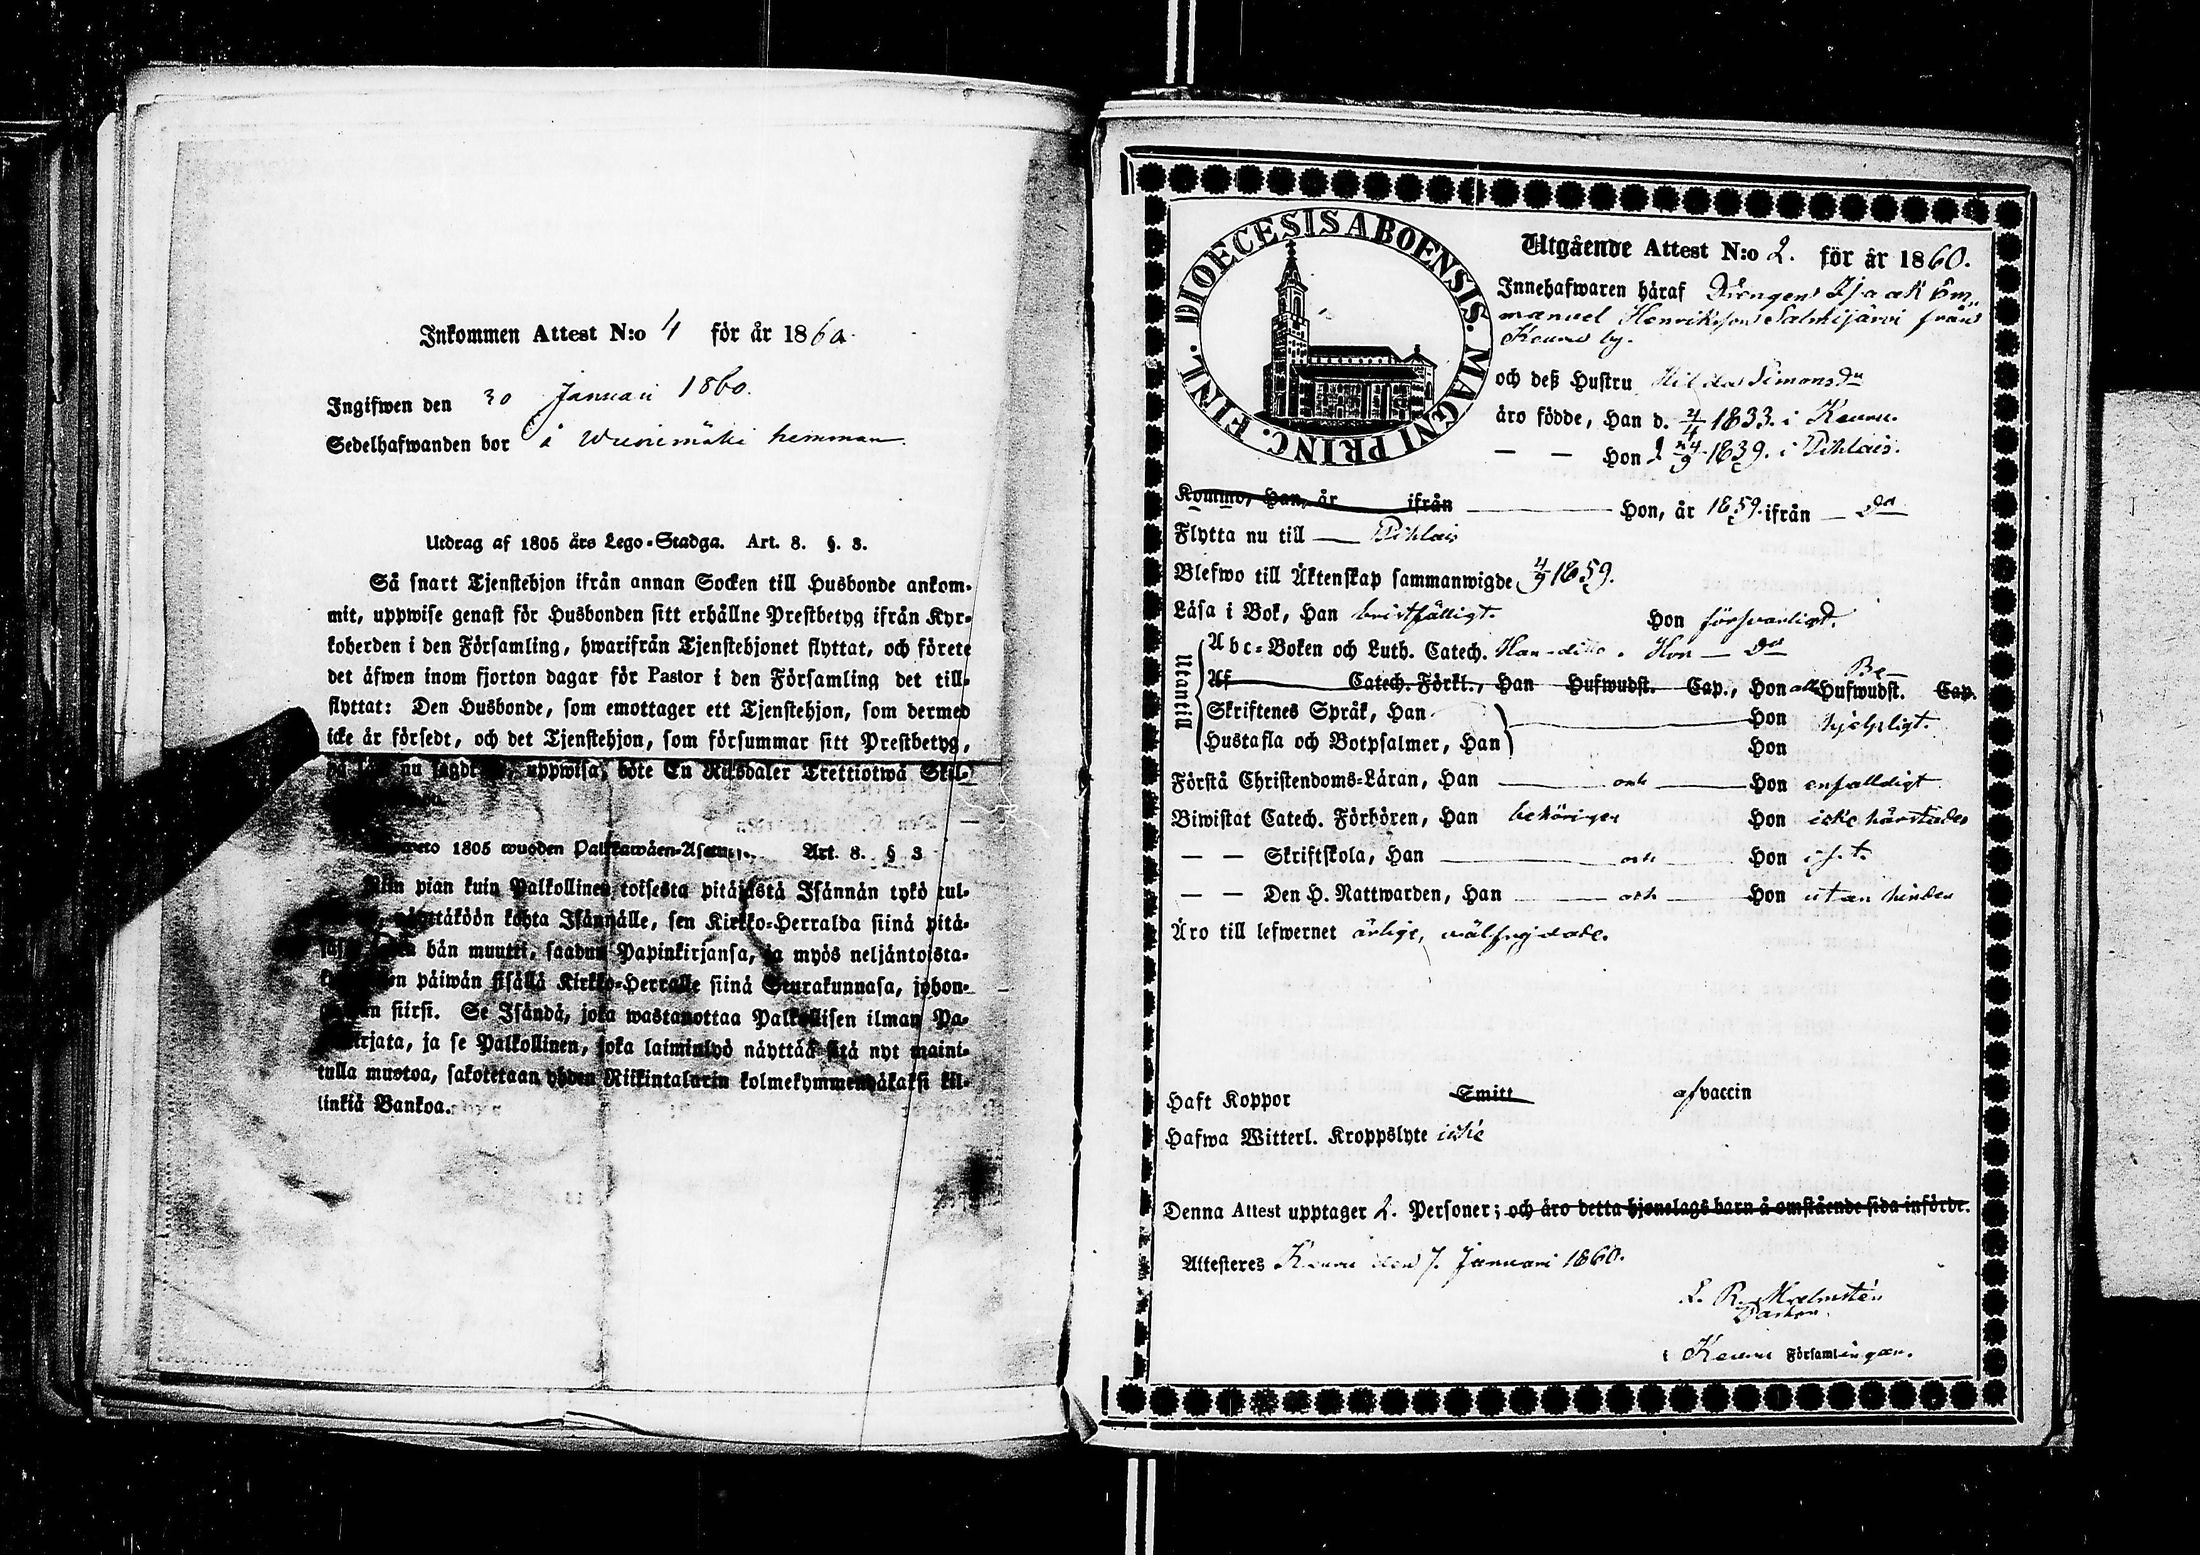 Inkommen Attest N:o 4 för år 1860.
Ingifwen den 30 Januari 1860.
Sedelhafwanden bor å Wuorimäki hemman.
Utdrag af 1805 års Lego-Stadga. Art. 8. §. 3.
Så snart Tjenstehjon ifrån annan Socken till Husbonde ankom-
mit, uppwise genast för Husbonden sitt erhållne Prestbetyg ifrån Kyr-
koherden i den Församling, hwarifrån Tjenstehjonet flyttat, och förete
det äfwen inom fjorton dagar för Pastor i den Församling det till-
flyttat: Den Husbonde, som emottager ett Tjenstehjon, som dermed
icke är försedt, och det Tjenstehjon, som försummar sitt Prestbetyg,
nu sagdt uppwisa, böte En Riksdaler Trettiotwå Skil-
1805 wuoden Palkkawäen-Asetus Art. 8. § 3
Niin pian kuin Palkollinen toisesta pitäjästä Isännän tykö tul-
näyttäköön kohta Isännälle, sen Kirkko-Herralda siinä pitä-
hän muutti, saadun Papinkirjansa, ja myös neljäntoista-
päiwän sisällä Kirkko-Herralle siinä Seurakunnasa, johon-
siirsi. Se Isändä, joka wastanottaa Palkollisen ilman Pa-
kirjata, ja se Palkollinen, joka laiminlyö näyttää sitä nyt maini-
tulla muotoa, sakotetaan yhden Riikintalarin kolmekymmendäkaksi kil-
linkiä Bankoa.
DIOECESIS ABOENSIS. MAGNI PRINC. FINL.
Utgående Attest N:o 2. för år 1860.
Innehafwaren häraf Drengen Isaak Em-
manuel Henriksson Salmijärvi från
Keuru by.
och deß Hustru Hilda Simonsdr
äro födde, Han d. 4/4 1833. i Keuru.
— — Hon d 24/9 1839. i Pihlais.
Kommo, Han, år ifrån Hon, år 1859. ifrån — Do
Flytta nu till — Pihlais
Blefwo till Äktenskap sammanwigde 4/9 1859.
Läsa i Bok, Han bristfälligt. Hon försvarligt.
Utantill
Abc-Boken och Luth. Catech. Han ditto. Hon — Do
Be-
Af Catech. Förkl., Han Hufwudst. Cap., Hon alla Hufwudst. Cap.
Skriftenes Språk, Han Hon hjelpligt.
Hustafla och Botpsalmer, Han Hon
Förstå Christendoms-Läran, Han — och — Hon enfalldigt
Biwistat Catech. Förhören, Han behörigen Hon icke härstädes
— — Skriftskola, Han — och — Hon
— — Den H. Nattwarden, Han — och — Hon utan hinder
Äro till lefwernet ärlige, wälfrejdade.
Haft Koppor Smitt af vaccin
Hafwa Witterl. Kroppslyte icke
Denna Attest upptager 2. Personer; och äro detta hjonelags barn å omstående sida införde.
Attesteres Keuru den 7. Januari 1860.
L. R. Malmstén
Pastor.
i Keuru Församlingen.